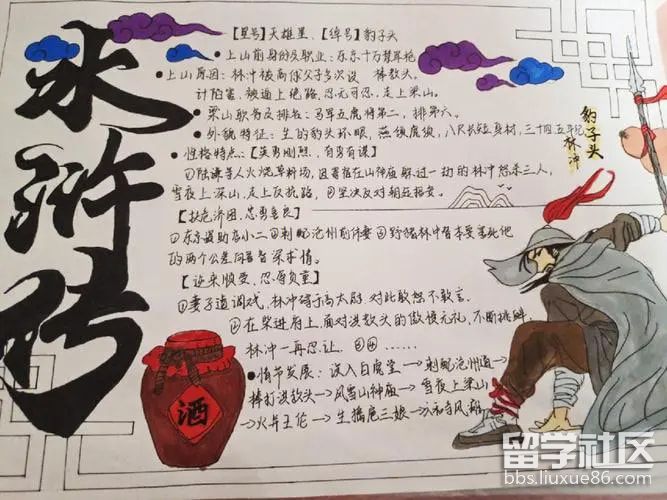 水浒传
【星号】天雄星、【绰号】豹子头
●上山前身份及职业：东京十万禁军枪棒教头。
●上山原因：林冲被高俅父子多次设计陷害，被逼上绝路，忍无可忍，走上梁山。
●梁山职务及排名：马军五虎将第二，排第六。
●外貌特征：生的豹头环眼，燕颔虎须，八尺长短身材，三十四五年纪
●性格特点：【英勇刚烈，有勇有谋】
①陆谦等人火烧草料场，因寄宿在山神庙躲过一劫的林冲怒杀三人，
雪夜上深山，走上反抗路，②坚决反对朝廷招安。
【扶危济困，忠勇善良】
①东京援助店小二②刺配沧州前休妻③野猪林中替本要害死他
的两个公差向鲁智深求情。
【逆来顺受，忍辱负重】
①妻子遭调戏，林冲碍于高太尉，对此敢怒不敢言。
②在柴进府上，面对洪教头的傲慢无礼，不断挑衅，
林冲一再忍让。③④……
●情节发展：误入白虎堂→刺配沧州道→
棒打洪教头→风雪山神庙→雪夜上梁山
→火并王伦→生擒扈三娘→
豹子头
林冲
酒
留学社区
bbs.liuxue86.com